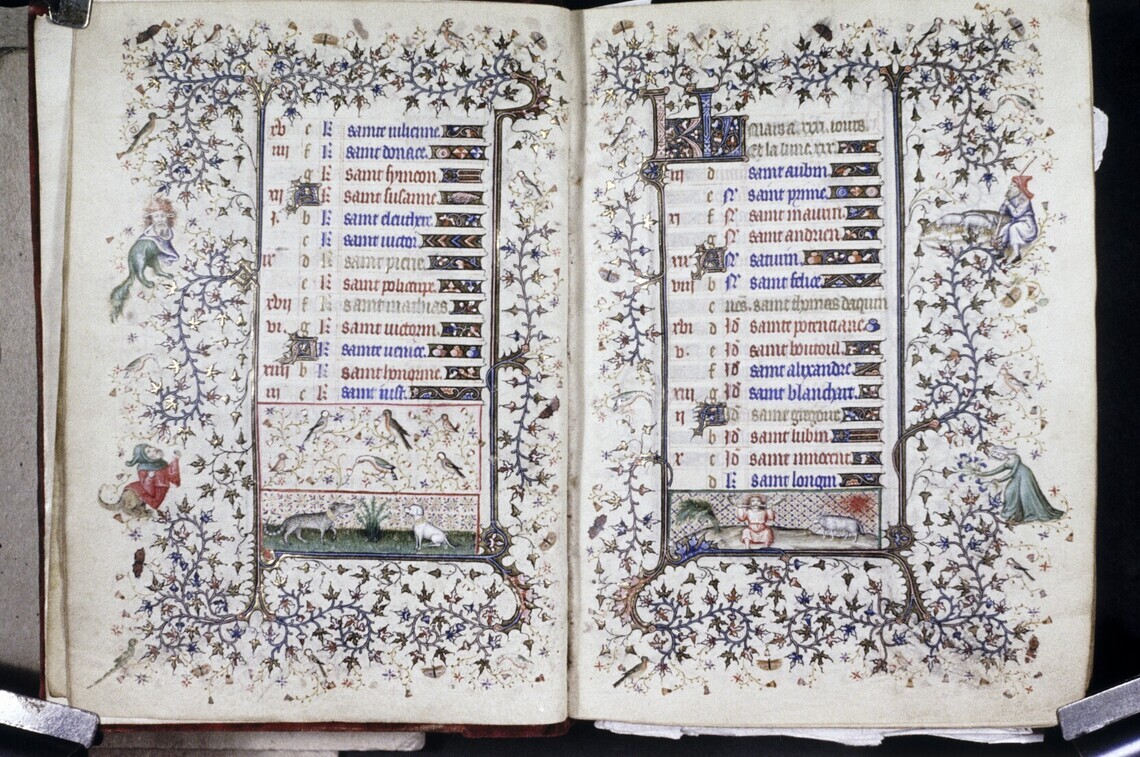 xv e k sainte iulienne.
iiii f k saint donace.
g k saint symeon
xii A k saint susanne.
i. b k saint eleuthere.
c k saint victor.
ix d k saint pierre.
e k saint policarpe.
xvii f k saint mathias
vi. g k saint victorin.
A k sainte venice.
xiiii b k sainte honorine.
iii c k saint iust.
KL Mars a. xxxi. iours.
Et la lune. xxx.
iii d saint aubin.
e Nˢ saint prime.
xi f Nˢ saint maurin.
g Nˢ saint andrien.
xix A Nˢ saturin.
viii b Nˢ saint felice.
c nēs. saint thomas daquin
xvi d Id sainte potenciane.
v. e Id saint
f Id saint alixandre.
xiii g Id saint blanchart.
ii A Id saint gregoire.
b Id saint lubin.
x c Id saint innocent.
d k saint longin.